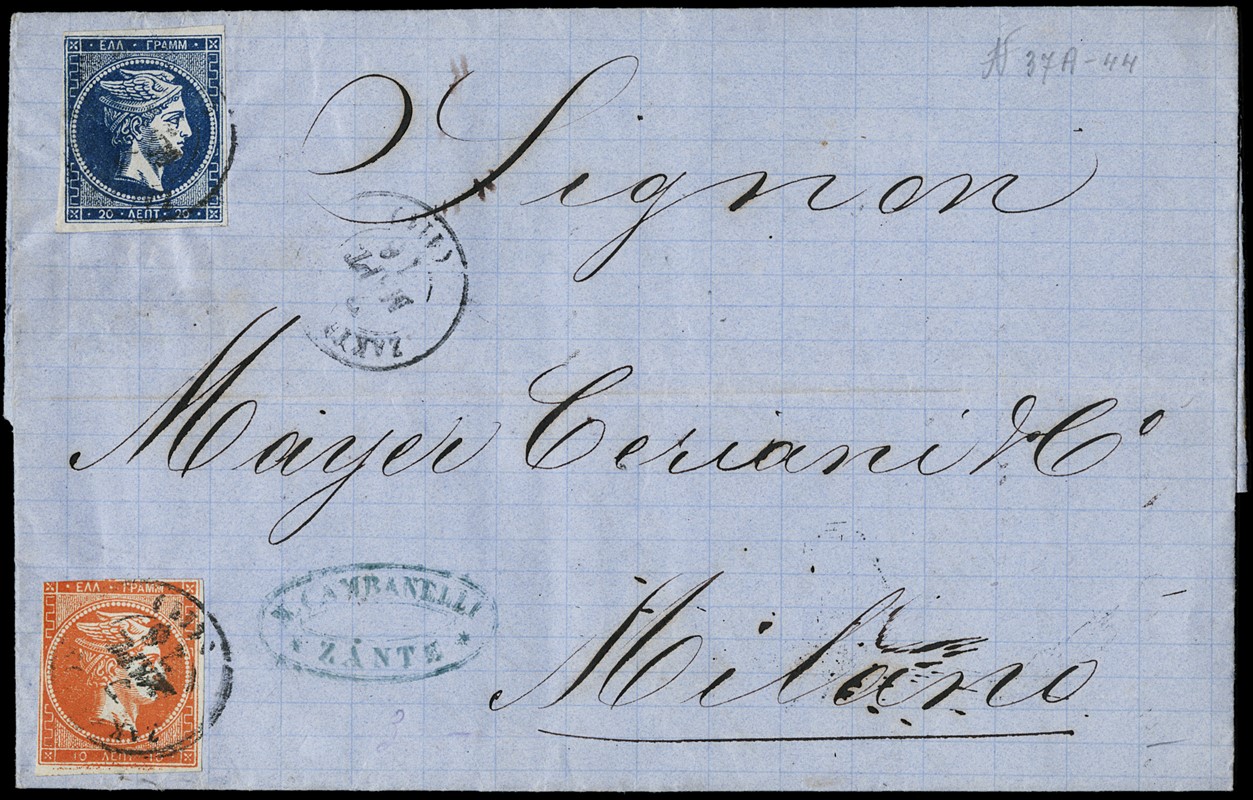 ΕΛΛ · ΓΡΑΜΜ
20 · ΛΕΠΤ · 20
37A-44
Signori
ΖΑΚΥ
Mayer Ceriani & Cº
ΕΛΛ · ΓΡΑΜΜ
10 · ΛΕΠΤ
ΖΑΚ
CAMBANELLI
ZANTE
Milano